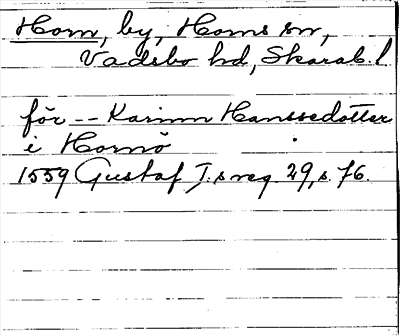 Horn, by, Horns sn,
Vadsbo hd, Skarab. l.
för -- Karinn Hanssedotter
i Hornö
1559 Gustaf I:s reg 29, s. 76.